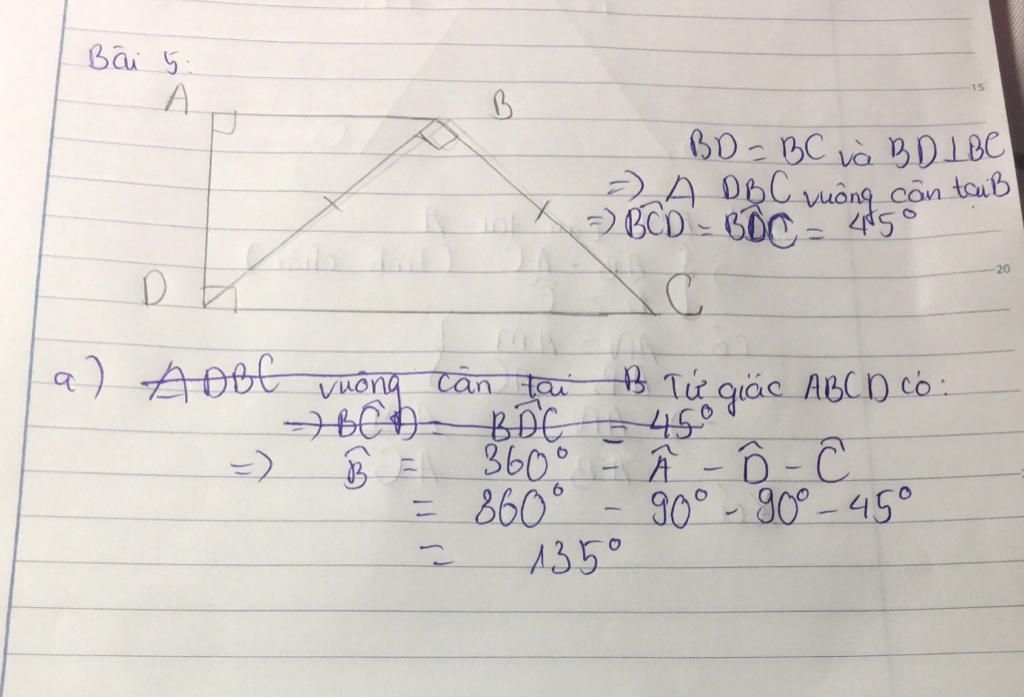 Bài 5:
A
B
D
C
15
20
BD = BC và BD⊥BC
=> Δ DBC vuông cân tại B
=> BĈD = BD̂C = 45°
a) Δ DBC vuông cân tại B Tứ giác ABCD có:
=> BĈD = BD̂C = 45°
=> B̂ = 360° - Â - D̂ - Ĉ
= 360° - 90° - 90° - 45°
= 135°